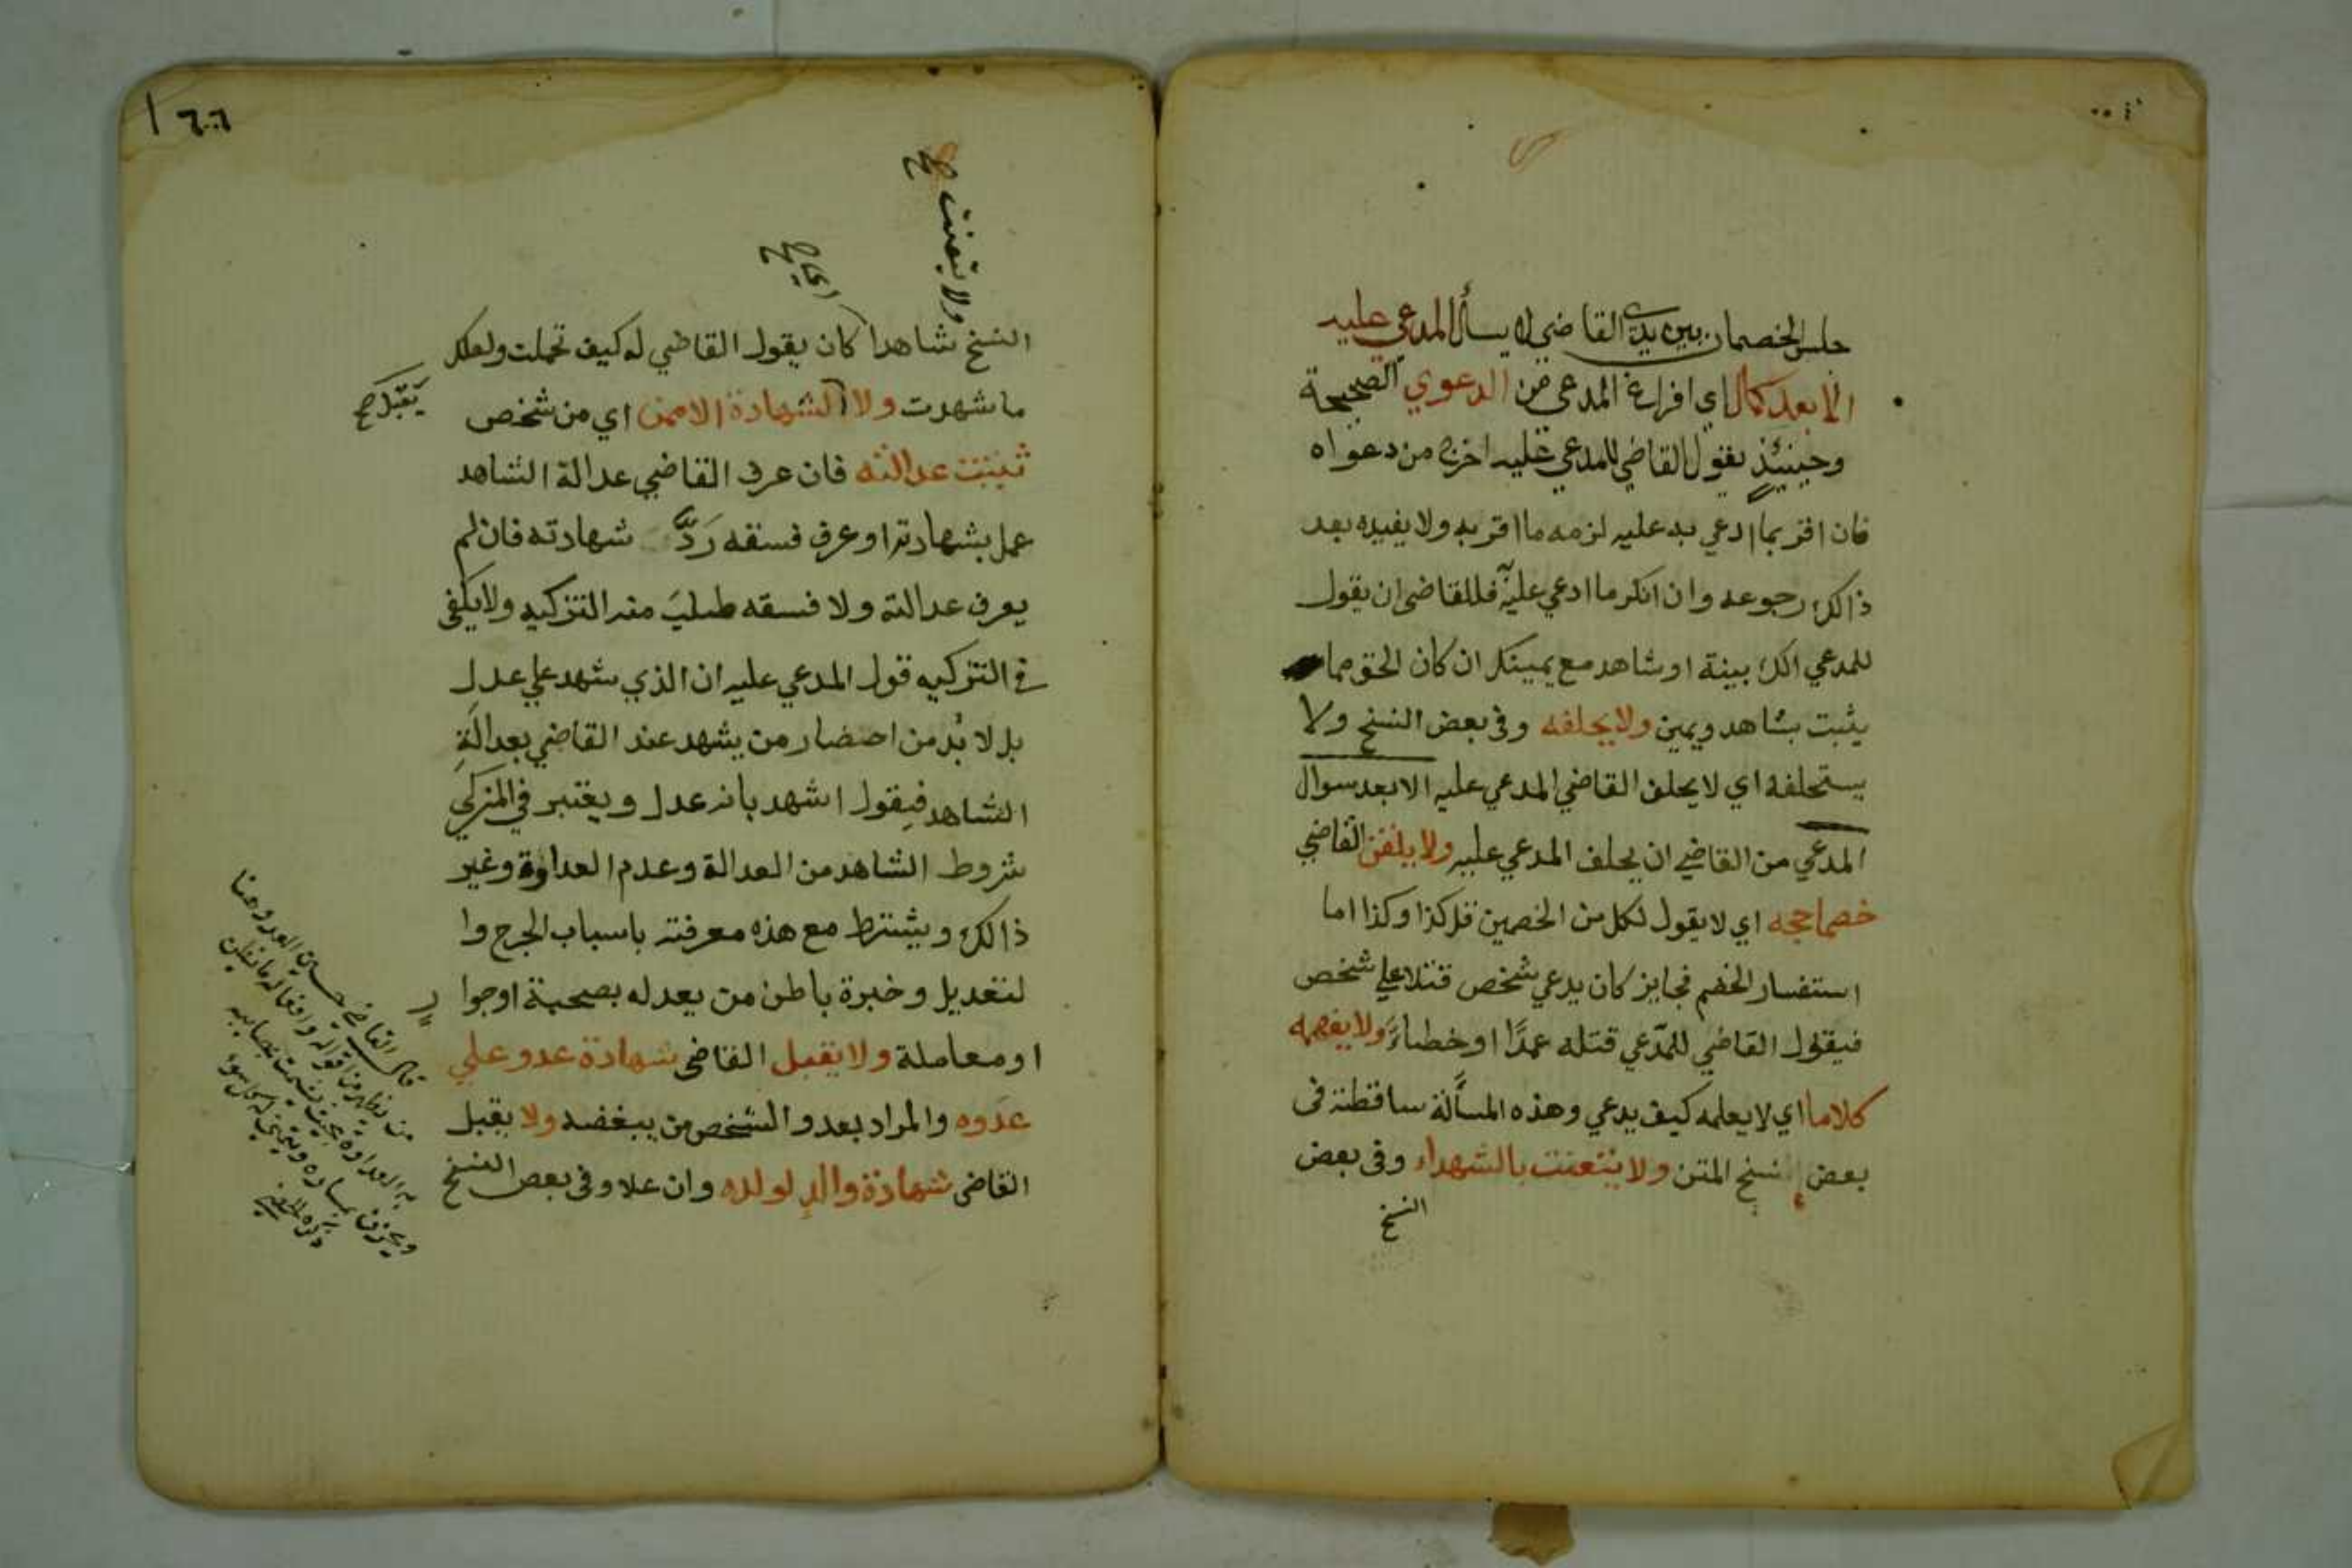 جلس الخصمان بين يدي القاضي لا يسأل المدعي عليه
الا بعد كمال اي افراغ المدعي من الدعوي الصحيحة
وحينيئذ يقول القاضي للمدعي عليه اخرج من دعواه
فان اقر بما ادعي به عليه لزمه ما اقر به ولا يفيده بعد
ذالك رجوعه وان انكر ما ادعي عليه فللقاضي ان يقول
للمدعي الك بينة او شاهد مع يمينك ان كان الحق مما
يثبت بشاهد ويمين ولا يحلفه وفي بعض النسخ ولا
يستحلفه اي لا يحلف القاضي المدعي عليه الا بعد سوال
المدعي من القاضي ان يحلف المدعي عليه ولا يلقن القاضي
خصما حجه اي لا يقول لكل من الخصمين قل كذا وكذا اما
استفسار الخصم فجايز كان يدعي شخص قتلا علي شخص
فيقول القاضي للمدّعي قتله عمدًا او خطاءً ولا يفهمه
كلاما اي لا يعلمه كيف يدعي وهذه المسألة ساقطة في
بعض نسخ المتن ولا يتعنت بالشهداء وفي بعض
النسخ
١٦٦
ولا يتعنت صح
اي صح
النسخ شاهدا كان يقول القاضي له كيف تحملت ولعلك
ما شهدت ولا الشهادة الا ممن اي من شخص
يَقبَل صح
ثبتت عدالته فان عرف القاضي عدالة الشاهد
عمل بشهادته او عرف فسقه رَدَّ شهادته فان لم
يعرف عدالته ولا فسقه طلبَ منه التزكيه ولا يكفي
في التزكيه قول المدعي عليه ان الذي شهد علي عدل
بل لا بُد من احضار من يشهد عند القاضي بعدالةِ
الشاهد فيقول اشهد بانه عدل ويعتبر في المزكي
شروط الشاهد من العدالة وعدم العداوة وغير
ذالك ويشترط مع هذه معرفته باسباب الجرح وا
لتعديل وخبرة باطن من يعدله بصحبة او جوا
ر
او معاملة ولا يقبل القاضي شهادة عدو علي
عدوه والمراد بعدو الشخص من يبغضه ولا يقبل
القاضي شهادة والدٍ لولده وان علا وفي بعض النسخ
قال القاضي حسين العدو هنا
من يظهر من اقواله وافعاله ما يظن
به العداوة بحيث يشمت بمصايبه
ويحزن بمساره ويتمني له كل سوء